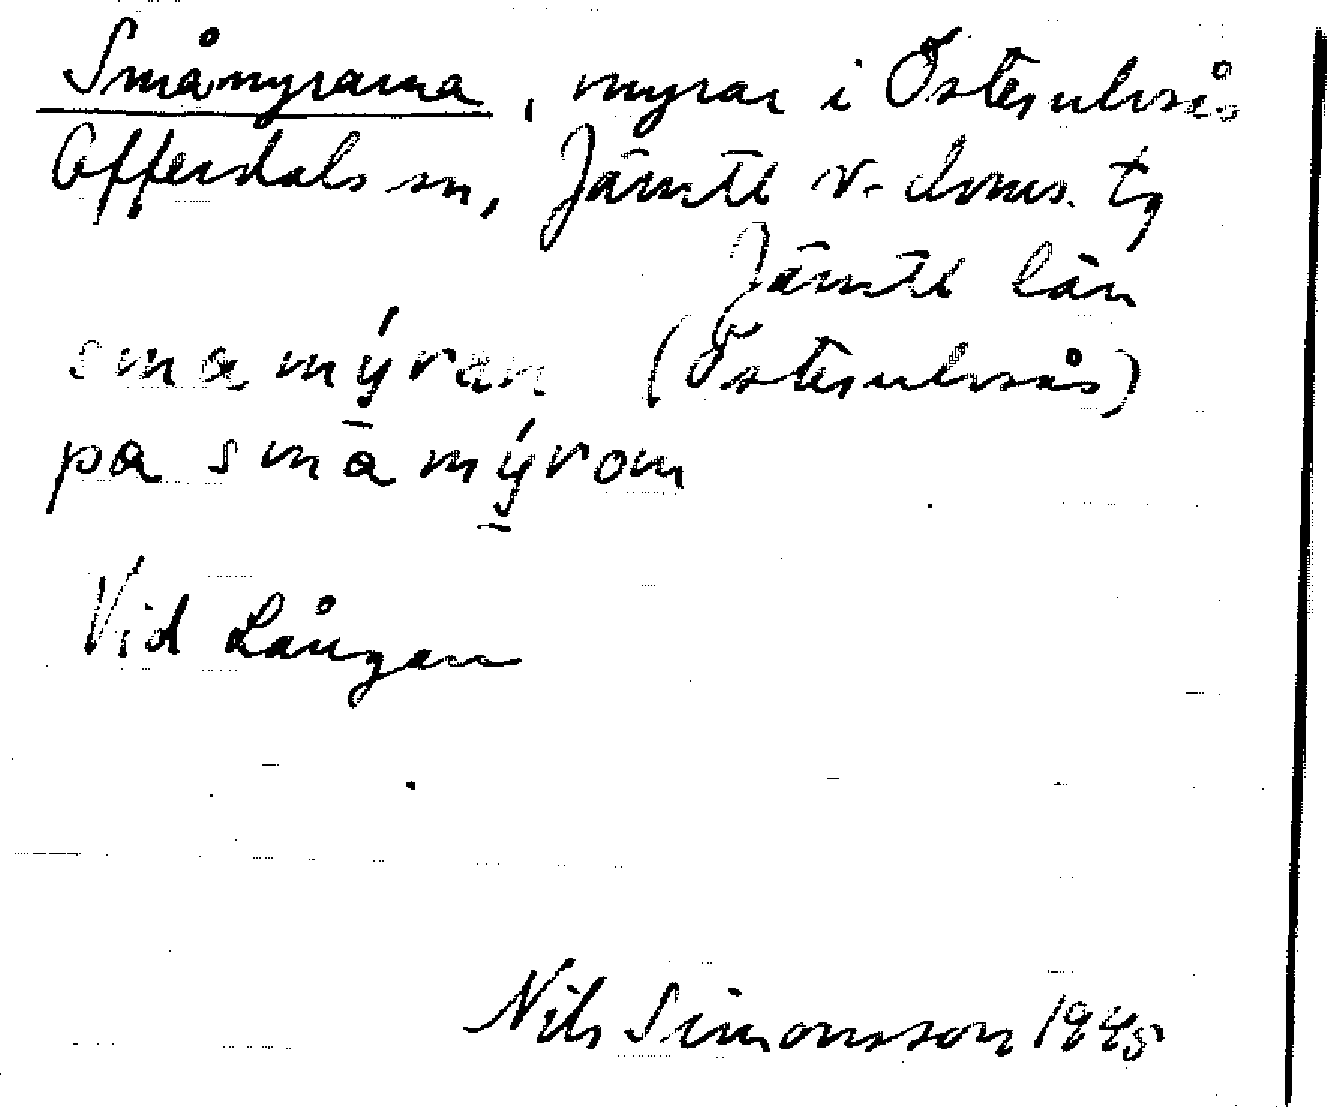 Småmyrarna, myrar i Österulvsås
Offerdals sn, Jämtl v. doms. tg
Jämtl län
smamýran (Österulvsås)
pa småmýrom
Vid Långan
Nils Simonsson 1945